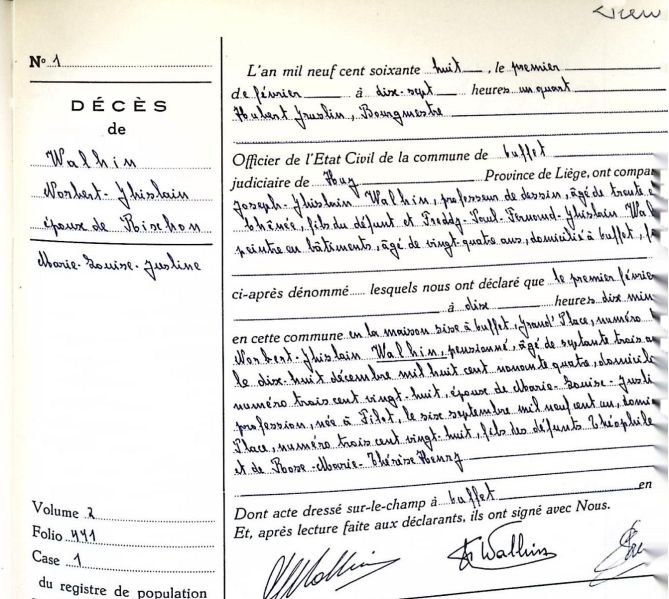 Nº 1
DÉCÈS
de
Walhin
Norbert-Ghislain
époux de Bischon
Marie-Louise-Justine
Volume 2
Folio 441
Case 1
du registre de population
L'an mil neuf cent soixante huit, le premier
de février à dix-sept heures un quart
Hubert, Bourgmestre
Officier de l'Etat Civil de la commune de Buffet
judiciaire de Huy Province de Liège, ont compa
Joseph-Ghislain Walhin, professeur de dessin, âgé de trente
Chênée, fils du défunt et Freddy-Paul-Fernand-Ghislain Wal
peintre en bâtiments, âgé de vingt quatre ans, domicilié à Buffet, f
ci-après dénommé lesquels nous ont déclaré que le premier févrie
à dix heures dix min
en cette commune en la maison sise à Buffet, Grand'Place, numéro
Norbert-Ghislain Walhin, pensionné, âgé de septante trois an
le dix-huit décembre mil huit cent nonante quatre, domicili
numéro trois cent vingt-huit, époux de Marie-Louise-Justi
profession, née à Filot, le six septembre mil neuf cent un, domi
Place, numéro trois cent vingt-huit, fils des défunts Théophile
et de Rose-Marie-Thérèse Henry
Dont acte dressé sur-le-champ à Buffet en
Et, après lecture faite aux déclarants, ils ont signé avec Nous.
Walhin